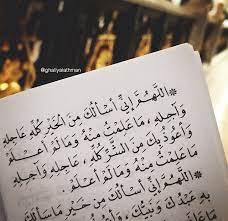 @ghaliyaathman
*اللَّهُمَّ إِنِّي أَسْأَلُكَ مِنَ الْخَيْرِ كُلِّهِ عَاجِلِهِ
وَآجِلِهِ، مَا عَلِمْتُ مِنْهُ وَمَا لَمْ أَعْلَمْ
وَأَعُوذُ بِكَ مِنَ الشَّرِّ كُلِّهِ، عَاجِلِهِ وَآجِلِهِ
مَا عَلِمْتُ مِنْهُ وَمَا لَمْ أَعْلَمْ.
*اللَّهُمَّ إِنِّي أَسْأَلُكَ مِنْ خَيْرِ مَا سَأَلَكَ
بِهِ عَبْدُكَ وَنَبِيُّكَ، وَأَعُوذُ